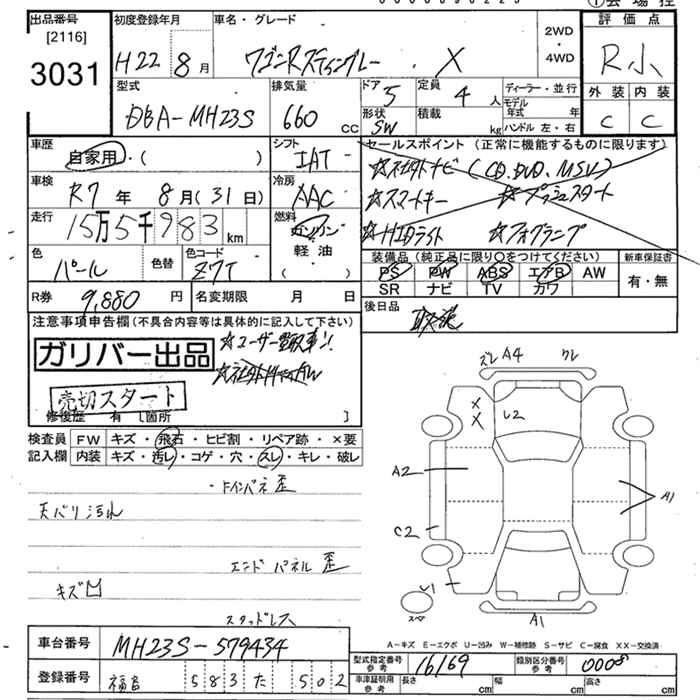 出品番号 初度登録年月 車名・グレード 2WD・4WD 評価点
[2116]
3031 H22 8月 ワゴンRスティングレー X R小
型式 排気量 ドア 定員 ディーラー・並行 外装 内装
DBA-MH23S 660cc 5 4人 モデル年式 年 C C
形状 積載 kg ハンドル 左・右
SW
車歴 シフト セールスポイント(正常に機能するものに限ります)
自家用・( ) IAT ☆社外ナビ(CD、DVD、MSV)
車検 冷房 ☆スマートキー ☆プッシュスタート
R7年 8月(31日) AAC
走行 燃料 ☆HIDライト ☆フォグランプ
15万5千983km ガソリン
軽油
( )
色 色替 色コード 装備品(純正品に限り○をつけてください) 新車保証書
パール Z7T PS PW ABS エアB AW 有・無
SR ナビ TV カワ
R券 9,880円 名変期限 月 日 後日品
取説
注意事項申告欄(不具合内容等は具体的に記入して下さい)
ガリバー出品 ☆ユーザー買取車!!
売切スタート
修復歴 有 [箇所 ]
検査員 FW キズ・飛石・ヒビ割・リペア跡・×要
記入欄 内装 キズ・汚レ・コゲ・穴・スレ・キレ・破レ
・インパネ歪
天バリ汚れ
エンドパネル歪
キズ凹
スタッドレス
ズレ A4 クレ
X
X
U2
A2
A1
C2
U1
スペア
A1
A-キズ E-エクボ U-凹み W-補修跡 S-サビ C-腐食 XX-交換済
車台番号 MH23S-579434
登録番号 福島 583 た 502
型式指定番号 参考 16169 類別区分番号 参考 0008
車庫証明用 参考 長さ cm 幅 cm 高さ cm